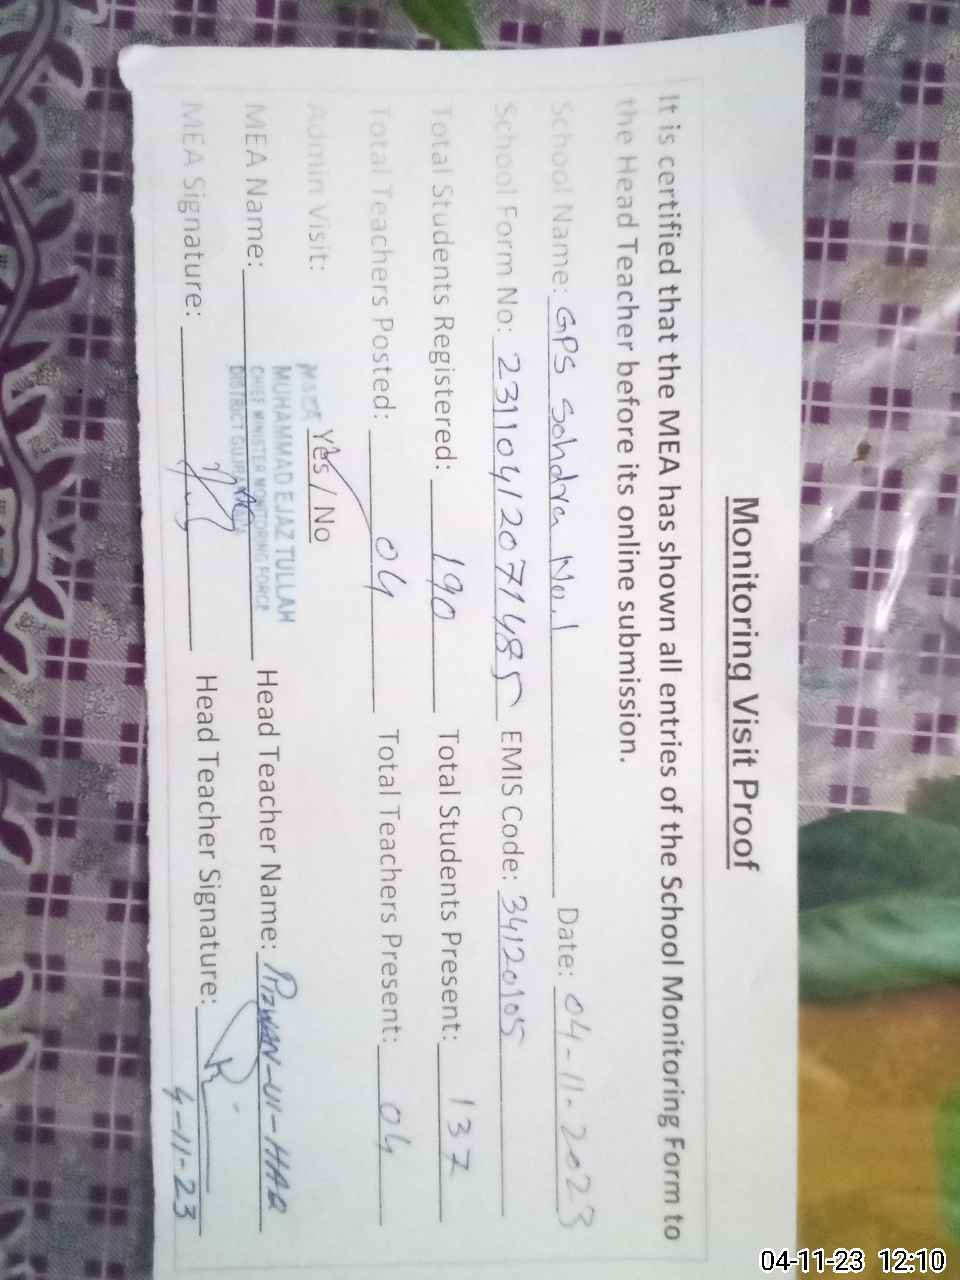 Monitoring Visit Proof
It is certified that the MEA has shown all entries of the School Monitoring Form to
the Head Teacher before its online submission.
School Name: GPS Sohdra No.1 Date: 04-11-2023
School Form No: 23110412071485 EMIS Code: 34120105
Total Students Registered: 190 Total Students Present: 137
Total Teachers Posted: 04 Total Teachers Present: 04
Admin Visit: Yes / No
MUHAMMAD EJAZ TULLAH
CHIEF MINISTER MONITORING FORCE
DISTRICT GUJRANWALA
MEA Name: Head Teacher Name: Rizwan-ul-Haq
MEA Signature: Head Teacher Signature:
4-11-23
04-11-23 12:10